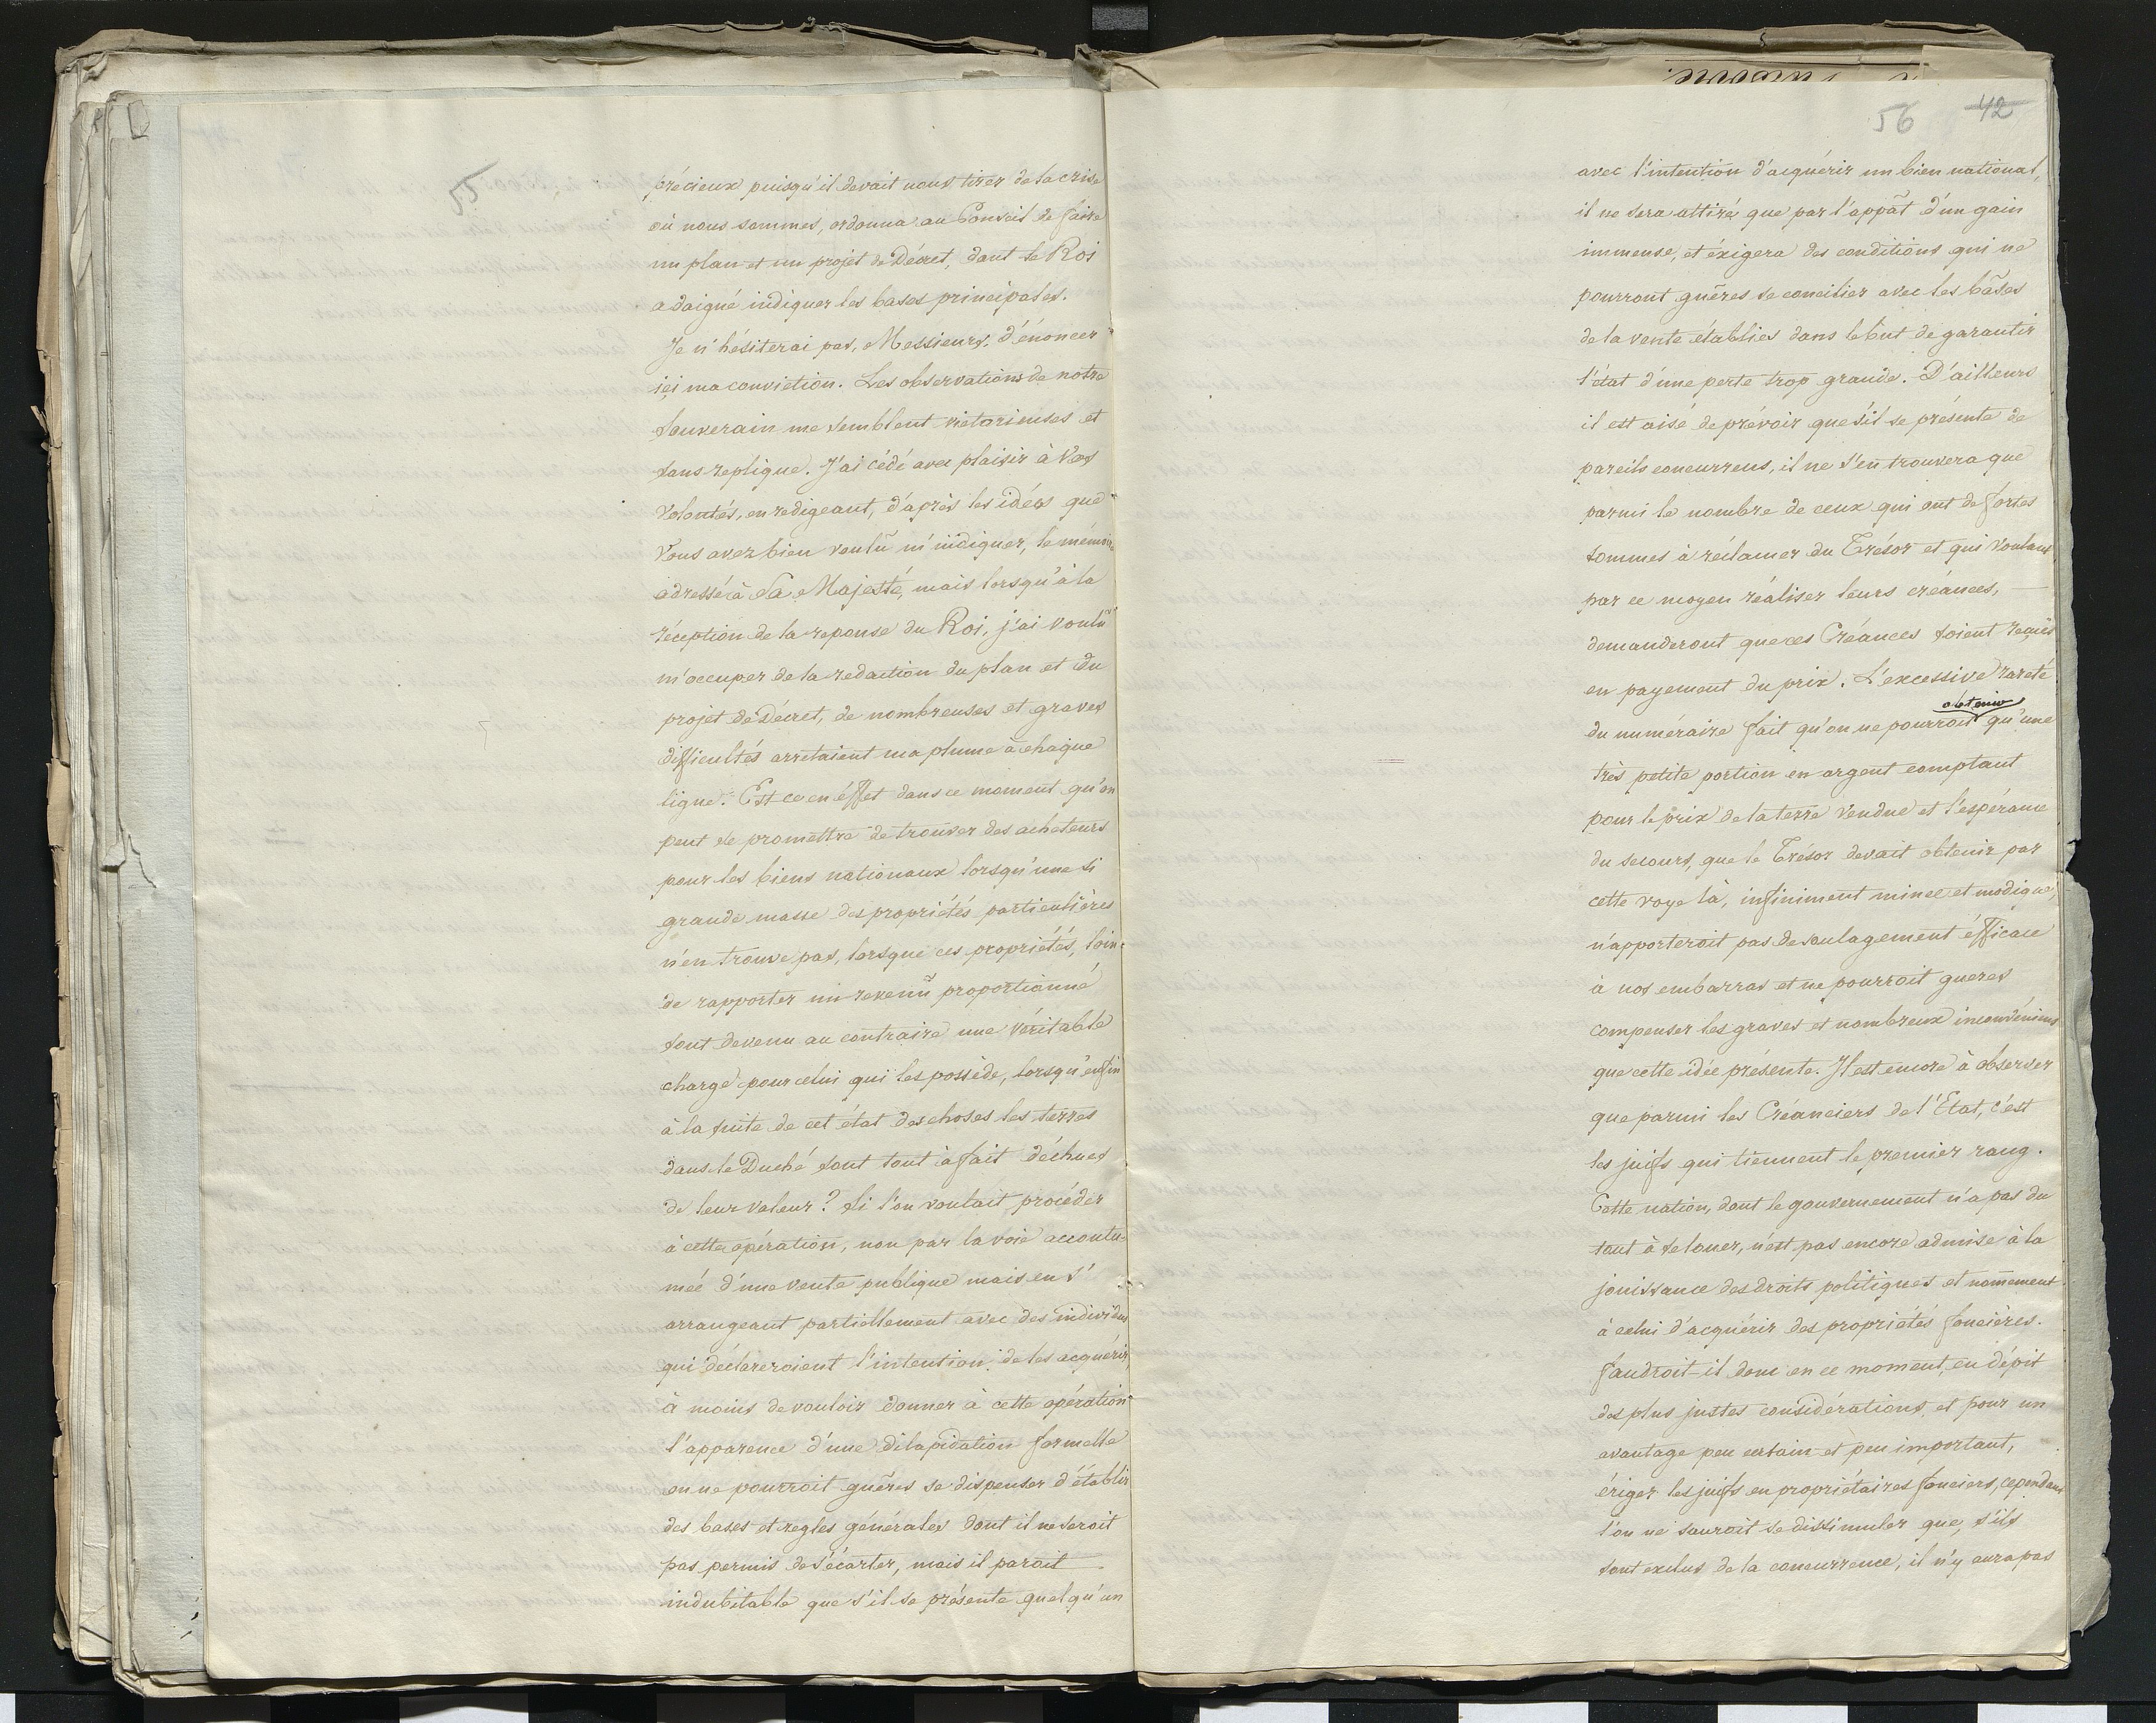 55
précieux puisqu'il devait nous tirer de la crise
où nous sommes, ordonna au Conseil de faire
un plan et un projet de Décret, dont le Roi
a daigné indiquer les bases principales.
Je n'hésiterai pas, Messieurs, d'énoncer
içi ma conviction. Les observations de notre
Souverain me semblent victorieuses et
sans replique. J'ai cédé avec plaisir à Vos
volontés, en redigeant, d'après les idées que
Vous avez bien voulû m'indiquer, le mémoire
adressé à Sa Majesté, mais lorsqu'à la
réception de la reponse du Roi, j'ai voulû
m'occuper de la redaction du plan et du
projet de Décret, de nombreuses et graves
difficultés arretaient ma plume à chaque
ligne. Est ce en éffet dans ce moment qu'on
peut se promettre de trouver des acheteurs
pour les biens nationaux lorsqu'une si
grande masse des propriétés particulières
n'en trouve pas, lorsque ces propriétés, loin
de rapporter un revenû proportionné
sont devenu au contraire une véritable
charge pour celui qui les possède, lorsqu'enfin
à la suite de cet état des choses les terres
dans le Duché sont tout à fait déchues
de leur valeur? Si l'on voulait procéder
à cette opération, non par la voie accoutu-
meé d'une vente publique mais en s'
arrangeant partiellement avec des individus
qui déclareroient l'intention de les acquérir,
à moins de vouloir donner à cette opération
l'apparence d'une dilapidation formelle
on ne pourroit guêres se dispenser d'établir
des bases et regles générales dont il ne seroit
pas permis de s'écarter, mais il parait
indubitable que s'il se présente quelqu'un
56 42
avec l'intention d'acquérir un bien national,
il ne sera attiré que par l'appât d'un gain
immense, et éxigera des conditions qui ne
pourront guêres se concilier avec les bâses
de la vente établies dans le but de garantir
l'état d'une perte trop grande. D'ailleurs
il est aisé de prévoir que s'il se présente de
pareils concurrens, il ne s'en trouvera que
parmi le nombre de ceux qui ont de fortes
sommes à réclamer du Trésor et qui voulant
par ce moyen réaliser leurs créances,
demanderont que ces Créances soient reçues
en payement du prix. L'excessive rareté
du numéraire fait qu'on ne pourroit obtenir qu'une
très petite portion en argent comptant
pour le prix de la terre vendue et l'espérance
du secours, que le Trésor devait obtenir par
cette voye là, infiniment mince et modique,
n'apporteroit pas de soulagement éfficace
à nos embarras et ne pourroit gueres
compenser les graves et nombreux inconvéniens
que cette idée présente. Il est encore à observer
que parmi les Créanciers de l'Etat, c'est
les juifs qui tiennent le premier rang.
Cette nation, dont le gouvernement n'a pas du
tout à se louer, n'est pas encore admise à la
jouissance des droits politiques et nom̄ement
à celui d'acquérir des propriétés foncières.
Faudroit-il donc en ce moment, en dépit
des plus justes considérations, et pour un
avantage peu certain et peu important,
ériger les juifs en propriétaires fonciers, cependant
l'on ne sauroit se dissimuler que, s'ils
sont exclus de la concurrence, il n'y aura pas